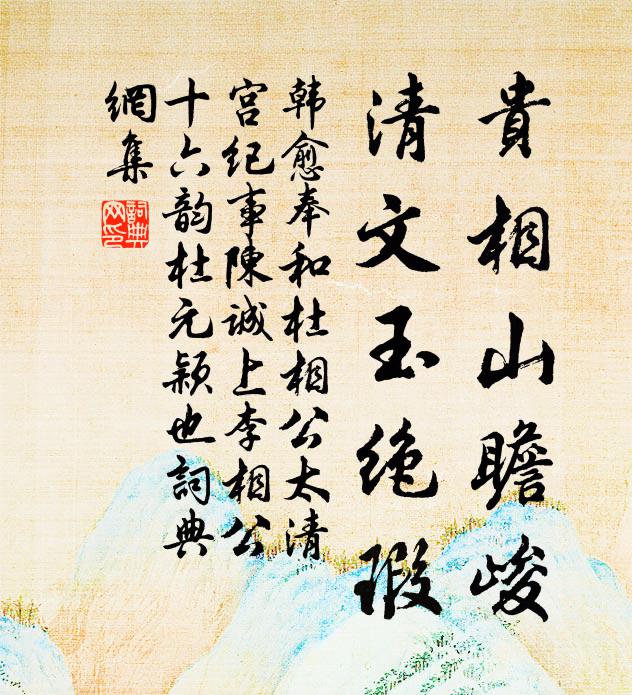 貴相山瞻峻
清文玉絶瑕
韩愈奉和杜相公太清
宫纪事陳诚上李相公
十六韵杜元颖也詞典
網集
詞典网印